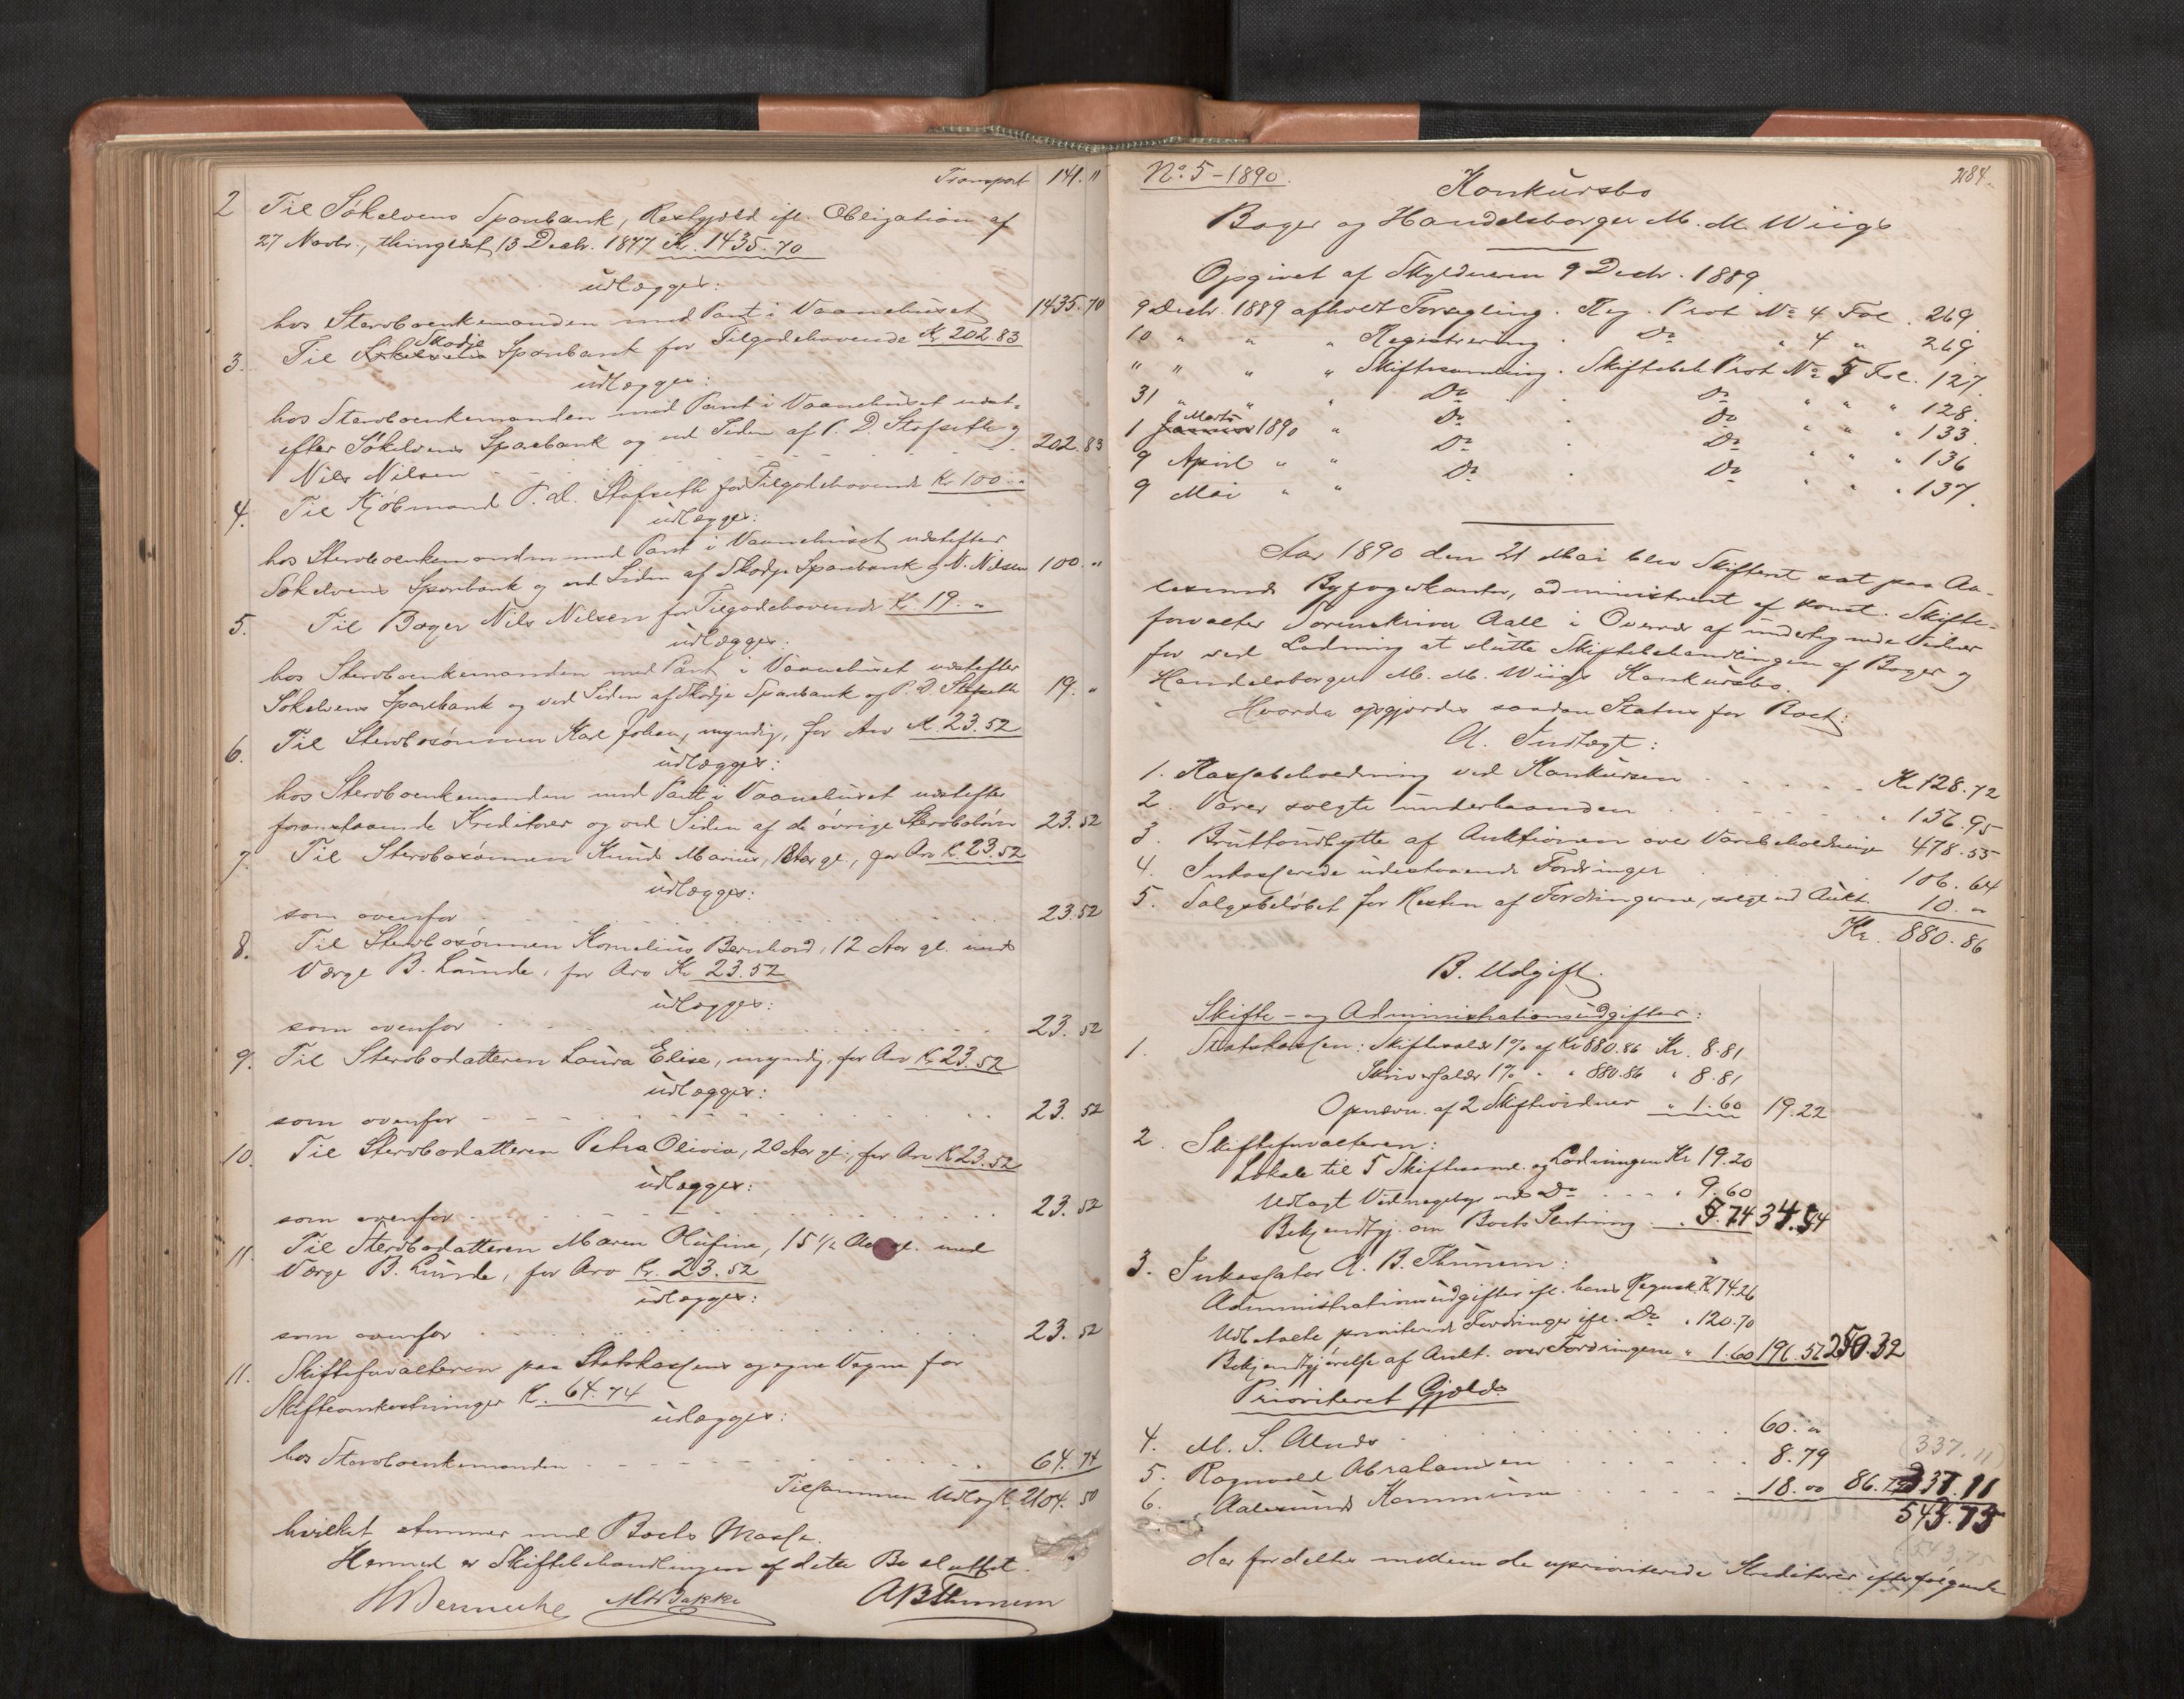 Transport 141. "
2 Til Søkelvens Sparebank, Restgjæld ifl. Obligation af
27 Novbr., thinglæst 13 Decbr. 1877 Kr. 1435.70
udlægges:
hos Stervboenkemanden med Pant i Vaanehuset 1435.70
3. Til Skodje Sparebank for Tilgodehavende Kr 202.83
udlægges:
hos Stervboenkemanden med Pant i Vaanehuset næst-
efter Søkelvens Sparebank og ved Siden af P. D. Stafseth og
Nils Nilsen 202.83
4. Til Kjøbmand P. D. Stafseth for Tilgodehavende Kr 100. "
udlægges:
hos Stervboenkemanden med Pant i Vaanehuset næstefter
Søkelvens Sparebank og ved Siden af Skodje Sparebank og N. Nilsen 100. "
5. Til Bager Nils Nilsen for Tilgodehavende Kr. 19. "
udlægges:
hos Stervboenkemanden med Pant i Vaanehuset næstefter
Søkelvens Sparebank og ved Siden af Skodje Sparebank og P. D. Stafseth 19. "
6. Til Stervbosønnen Karl Johan, myndig, for Arv Kr. 23.52
udlægges:
hos Stervboenkemanden med Pant i Vaanehuset næstefter
foranstaaende Kreditorer og ved Siden af de øvrige Stervbobørn 23.52
7. Til Stervbosønnen Knud Marius, Aar gl., for Arv K. 23.52
udlægges:
som ovenfor 23.52
8. Til Stervbosønnen Kornelius Bernhard, 12 Aar gl. med
Værge B. Lunde, for Arv Kr 23.52
udlægges:
som ovenfor 23.52
9. Til Stervbodatteren Laura Elise, myndig, for Arv Kr 23.52
udlægges:
som ovenfor 23.52
10. Til Stervbodatteren Petra Olivia, 20 Aar gl., for Arv K 23.52
udlægges:
som ovenfor 23.52
11. Til Stervbodatteren Maren Olufine, 15 1/2 Aar gl. med
Værge B. Lunde, for Arv Kr. 23.52
udlægges:
som ovenfor 23.52
11. Skifteforvalteren paa Statskassens og egne Vegne for
Skifteomkostninger K. 64.74
udlægges:
hos Stervboenkemanden 64.74
Tilsammen Udlagt 2104.50
hvilket stemmer med Boets Masse.
Hermed er Skiftebehandlingen af dette Bo sluttet.
ABThunem
No. 5 - 1890. 284.
Konkursbo
Bager og Handelsborger M. M. Wiigs
Opgivet af Skyldneren 9 Decbr. 1889
9 Decbr. 1889 afholdt Forsegling. Reg. Prot No 4 Fol. 269.
10 " " " Registrering. Do " 4 " 269.
" " " " Skiftesamling. Skiftebeh. Prot No 5 Fol. 127.
31 " " " Do . Do " " " 128.
1 Januar Marts 1890 " Do . Do " " " 133.
9 April " " Do . Do " " " 136
9 Mai " " Do . Do " " " 137.
Aar 1890 den 21 Mai blev Skifteret sat paa Aa-
lesunds Byfogedkontor, administreret af konst. Skifte-
forvalter Sorenskriver Aall i Overvær af undertegnede Vidner
for ved Lodning at slutte Skiftebehandlingen af Bager og
Handelsborger M. M. Wiigs Konkursbo.
Hvorda opgjordes saadan Status for Boet:
A. Indtægt:
1. Kassabeholdning ved Konkursen Kr 128.72
2. Varer solgte underhaanden " 156.95
3. Bruttoudbytte af Auktionen over Varebeholdninge 478.55
4. Inkasserede udestaaende Fordringer 106.64
5. Salgsbeløbet for Resten af Fordringerne, solgt ved Aukt. 10. "
Kr. 880.86
B. Udgift.
Skifte- og Administrationsudgifter:
1. Statskassen: Skiftesalær 1% af Kr 880.86 Kr. 8.81
Skriversalær 1% " " 880.86 " 8.81
Opnævn. af 2 Skiftevidner " 1.60 19.22
2. Skifteforvalteren:
Lokale til 5 Skiftesaml. og Lodningen Kr 19.20
Udlagt Vidnegebyr ved Do " 9.60
Bekjendtgj. om Boets Slutning " 5.74 34.54
3. Inkassator A. B. Thunem:
Administrationsudgifter ifl. hans Regnsk. K 74.26
Udbetalte prioriterede Fordringer ifl. Do " 120.70
Bekjendtgjørelse af Aukt. over Fordringerne " 1.60 196.56 250.32
Prioriteret Gjæld.
4. M. S. Alnes 60. "
5. Ragnvald Abrahamsen 8.79
6. Aalesunds Kommune 18.00 86.79 337.11
337.11
543.75
543,75
der fordeltes mellem de uprioriterede Kreditorer efterfølgende